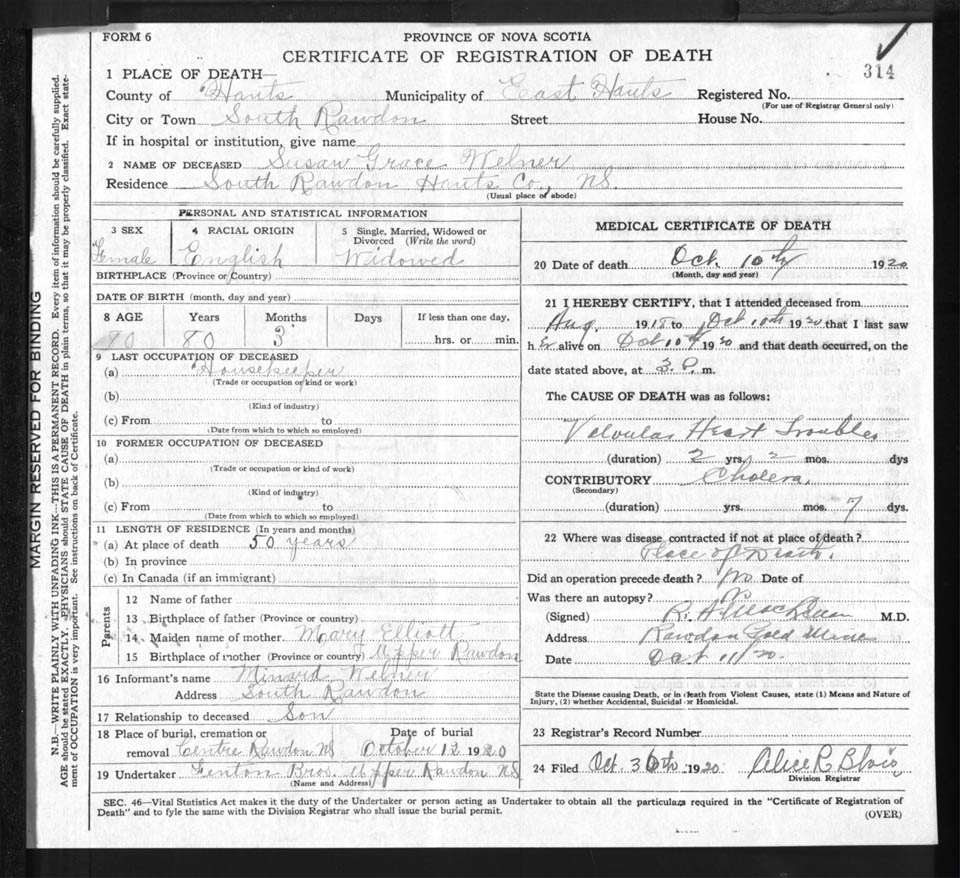 FORM 6
PROVINCE OF NOVA SCOTIA
CERTIFICATE OF REGISTRATION OF DEATH
314
1 PLACE OF DEATH—
County of Hants Municipality of East Hants Registered No.
(For use of Registrar General only)
City or Town South Rawdon Street House No.
If in hospital or institution, give name
2 NAME OF DECEASED Susan Grace Welner
Residence South Rawdon Hants Co., NS.
(Usual place of abode)
PERSONAL AND STATISTICAL INFORMATION
3 SEX 4 RACIAL ORIGIN 5 Single, Married, Widowed or Divorced (Write the word)
Female English Widowed
BIRTHPLACE (Province or Country)
DATE OF BIRTH (month, day and year)
8 AGE Years Months Days If less than one day,
80 80 3 hrs. or min.
9 LAST OCCUPATION OF DECEASED
(a) Housekeeper
(Trade or occupation or kind or work)
(b)
(Kind of industry)
(c) From to
(Date from which to which so employed)
10 FORMER OCCUPATION OF DECEASED
(a)
(Trade or occupation or kind of work)
(b)
(Kind of industry)
(c) From to
(Date from which to which so employed)
11 LENGTH OF RESIDENCE (In years and months)
(a) At place of death 50 years
(b) In province
(c) In Canada (if an immigrant)
Parents
12 Name of father
13 Birthplace of father (Province or country)
14 Maiden name of mother Mary Elliott
15 Birthplace of mother (Province or country) Upper Rawdon
16 Informant's name Minard Welner
Address South Rawdon
17 Relationship to deceased Son
18 Place of burial, cremation or Date of burial
removal Centre Rawdon NS October 12 1920
19 Undertaker Bros. Upper Rawdon NS
(Name and Address)
MEDICAL CERTIFICATE OF DEATH
20 Date of death Oct. 10th 1920
(Month, day and year)
21 I HEREBY CERTIFY, that I attended deceased from
Aug. 1918 to Oct 10th 1920 that I last saw
h er alive on Oct 10th 1920 and that death occurred, on the
date stated above, at 3. P. m.
The CAUSE OF DEATH was as follows:
Valvular Heart Troubles
(duration) 2 yrs. 2 mos. dys
CONTRIBUTORY Cholera.
(Secondary)
(duration) yrs. mos. 7 dys.
22 Where was disease contracted if not at place of death?
Place of Death.
Did an operation precede death? No Date of
Was there an autopsy?
(Signed) M.D.
Address Rawdon Gold Mines
Date Oct 11/20.
State the Disease causing Death, or in death from Violent Causes, state (1) Means and Nature of
Injury, (2) whether Accidental, Suicidal or Homicidal.
23 Registrar's Record Number
24 Filed Oct. 30th 1920. Alice R Blois
Division Registrar
SEC. 46—Vital Statistics Act makes it the duty of the Undertaker or person acting as Undertaker to obtain all the particulars required in the "Certificate of Registration of
Death" and to fyle the same with the Division Registrar who shall issue the burial permit.
(OVER)
MARGIN RESERVED FOR BINDING
N.B.—WRITE PLAINLY WITH UNFADING INK—THIS IS A PERMANENT RECORD. Every item of information should be carefully supplied.
AGE should be stated EXACTLY. PHYSICIANS should STATE CAUSE OF DEATH in plain terms, so that it may be properly classified. Exact state-
ment of OCCUPATION is very important. See instructions on back of Certificate.